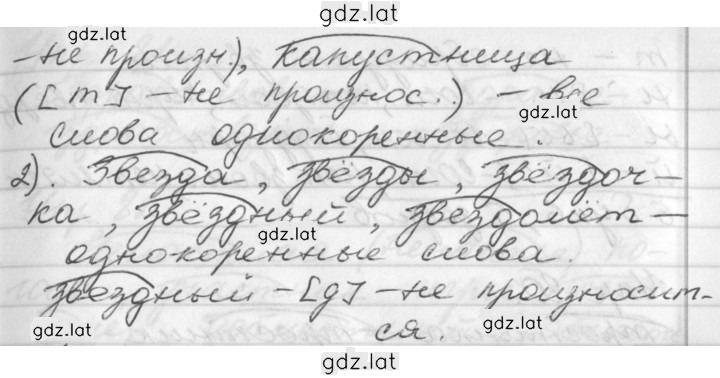 gdz.lat
gdz.lat
-не произн.), капустница
([т] - не произнос..) - все
gdz.lat
слова однокоренные.
2). Звезда, звёзды, звёздоч-
ка, звёздный, звездолёт -
gdz.lat
однокоренные слова.
звездный - [д] - не произносит-
gdz.lat
ся. gdz.lat
gdz.lat